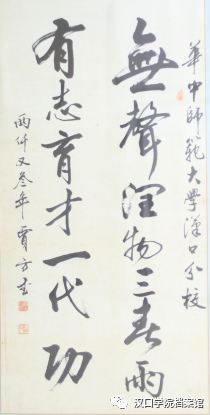 華中師範大學漢口分校
無聲潤物三春雨
有志育才一代功
兩仟又叁年賈方書
汉口学院档案馆